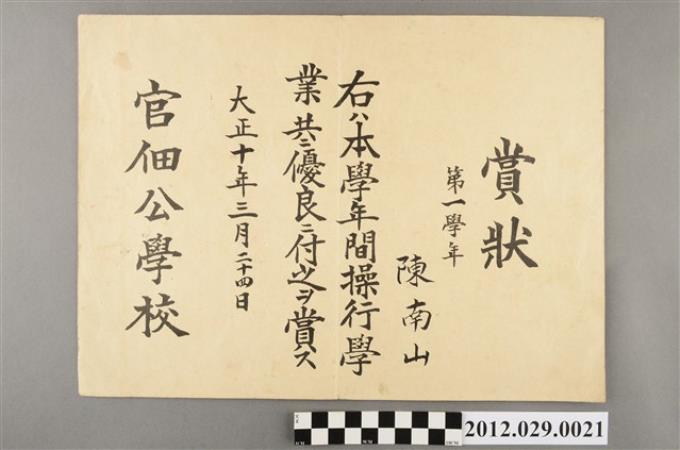 賞狀
第一學年
陳南山
右ハ本學年間操行學
業共ニ優良ニ付之ヲ賞ス
大正十年三月二十四日
官佃公學校
2012.029.0021